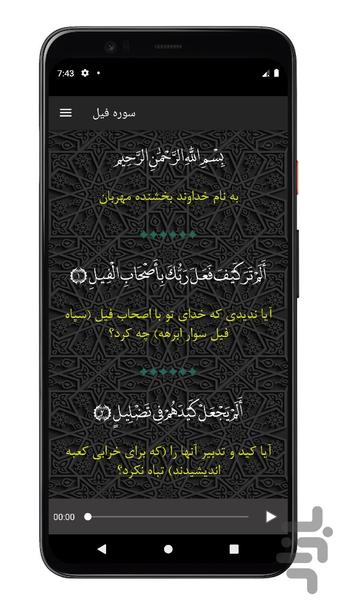 7:43
سوره فیل
بِسْمِ اللَّهِ الرَّحْمَٰنِ الرَّحِيمِ
به نام خداوند بخشنده مهربان
أَلَمْ تَرَ كَيْفَ فَعَلَ رَبُّكَ بِأَصْحَابِ الْفِيلِ ﴿١﴾
آیا ندیدی که خدای تو با اصحاب فیل (سپاه
فیل سوار ابرهه) چه کرد؟
أَلَمْ يَجْعَلْ كَيْدَهُمْ فِي تَضْلِيلٍ ﴿٢﴾
آیا کید و تدبیر آنها را (که برای خرابی کعبه
اندیشیدند) تباه نکرد؟
00:00
بازار